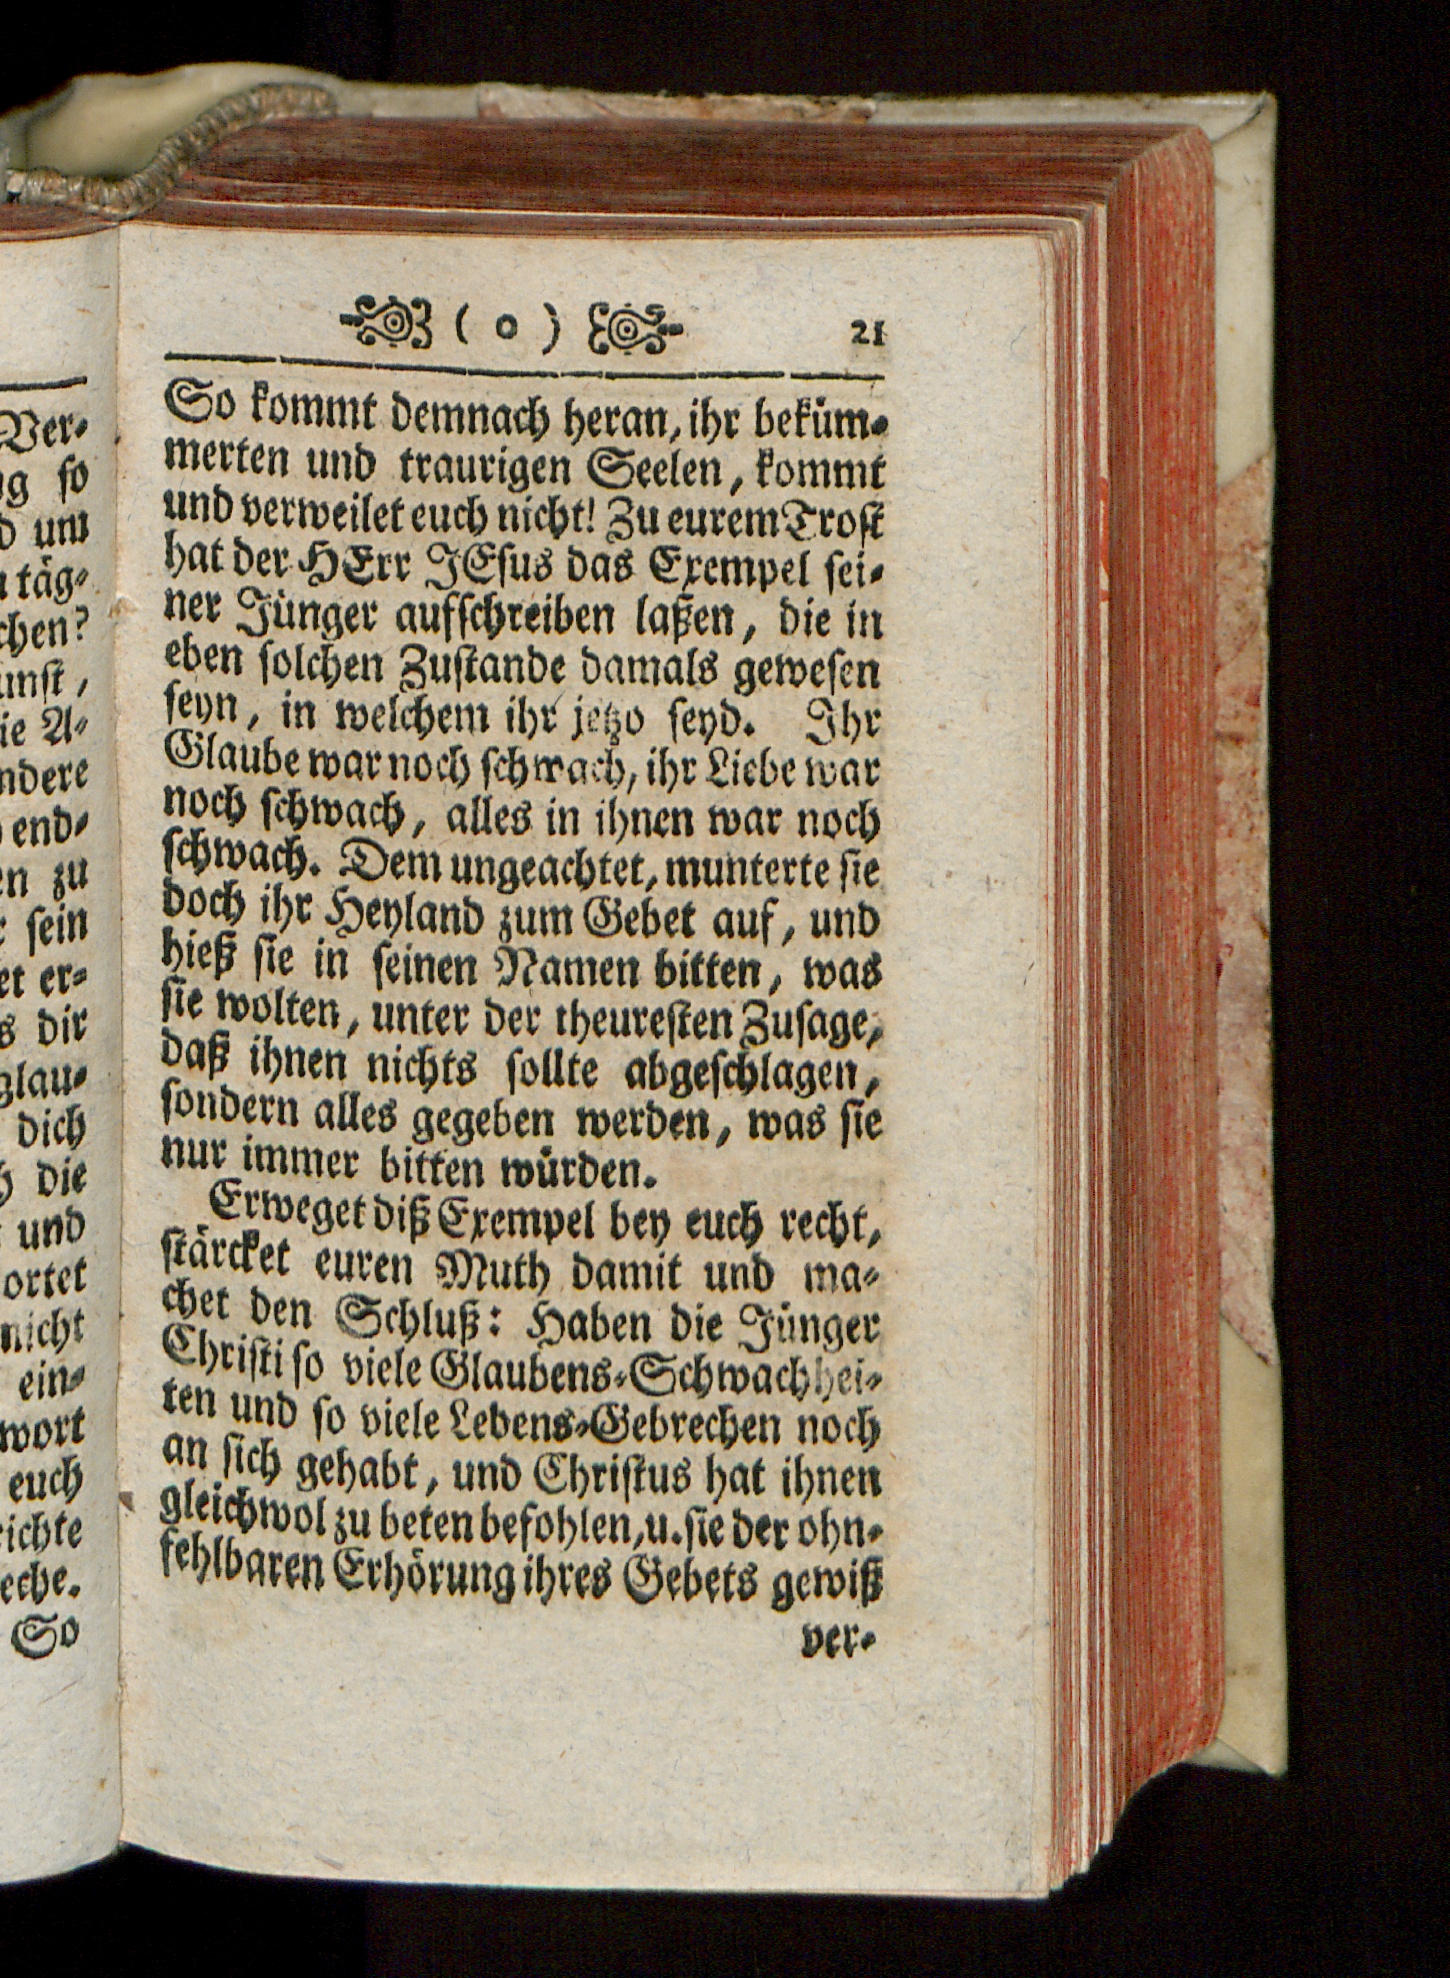 Ver-
ng so
d um
täg-
chen?
unst,
ie A-
ndere
end-
en zu
sein
et er-
s dir
glau-
dich
die
und
ortet
nicht
ein-
wort
euch
ichte
eche.
So
( o ) 21
So kommt demnach heran, ihr beküm-
merten und traurigen Seelen, kommt
und verweilet euch nicht! Zu eurem Trost
hat der HErr JEsus das Exempel sei-
ner Jünger aufschreiben laßen, die in
eben solchen Zustande damals gewesen
seyn, in welchem ihr jetzo seyd. Ihr
Glaube war noch schwach, ihr Liebe war
noch schwach, alles in ihnen war noch
schwach. Dem ungeachtet, munterte sie
doch ihr Heyland zum Gebet auf, und
hieß sie in seinen Namen bitten, was
sie wolten, unter der theuresten Zusage,
daß ihnen nichts sollte abgeschlagen,
sondern alles gegeben werden, was sie
nur immer bitten würden.
Erweget diß Exempel bey euch recht,
stärcket euren Muth damit und ma-
chet den Schluß: Haben die Jünger
Christi so viele Glaubens-Schwachhei-
ten und so viele Lebens-Gebrechen noch
an sich gehabt, und Christus hat ihnen
gleichwol zu beten befohlen, u. sie der ohn-
fehlbaren Erhörung ihres Gebets gewiß
ver-